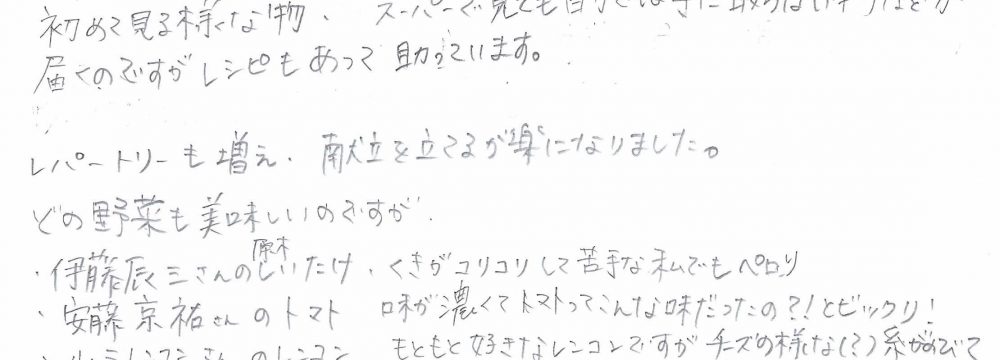 初めて見る様な物、スーパーで見ても自分では手に取らない
届くのですがレシピもあって助っています。
レパートリーも増え、献立を立てるが楽になりました。
どの野菜も美味しいのですが、
・伊藤辰三さんの原木しいたけ、くきがコリコリして苦手な私でもペロリ
・安藤京祐さんのトマト 味が濃くてトマトってこんな味だったの?!とビックリ!
さんのレンコン もともと好きなレンコンですがチーズの様な(?)糸がのびて